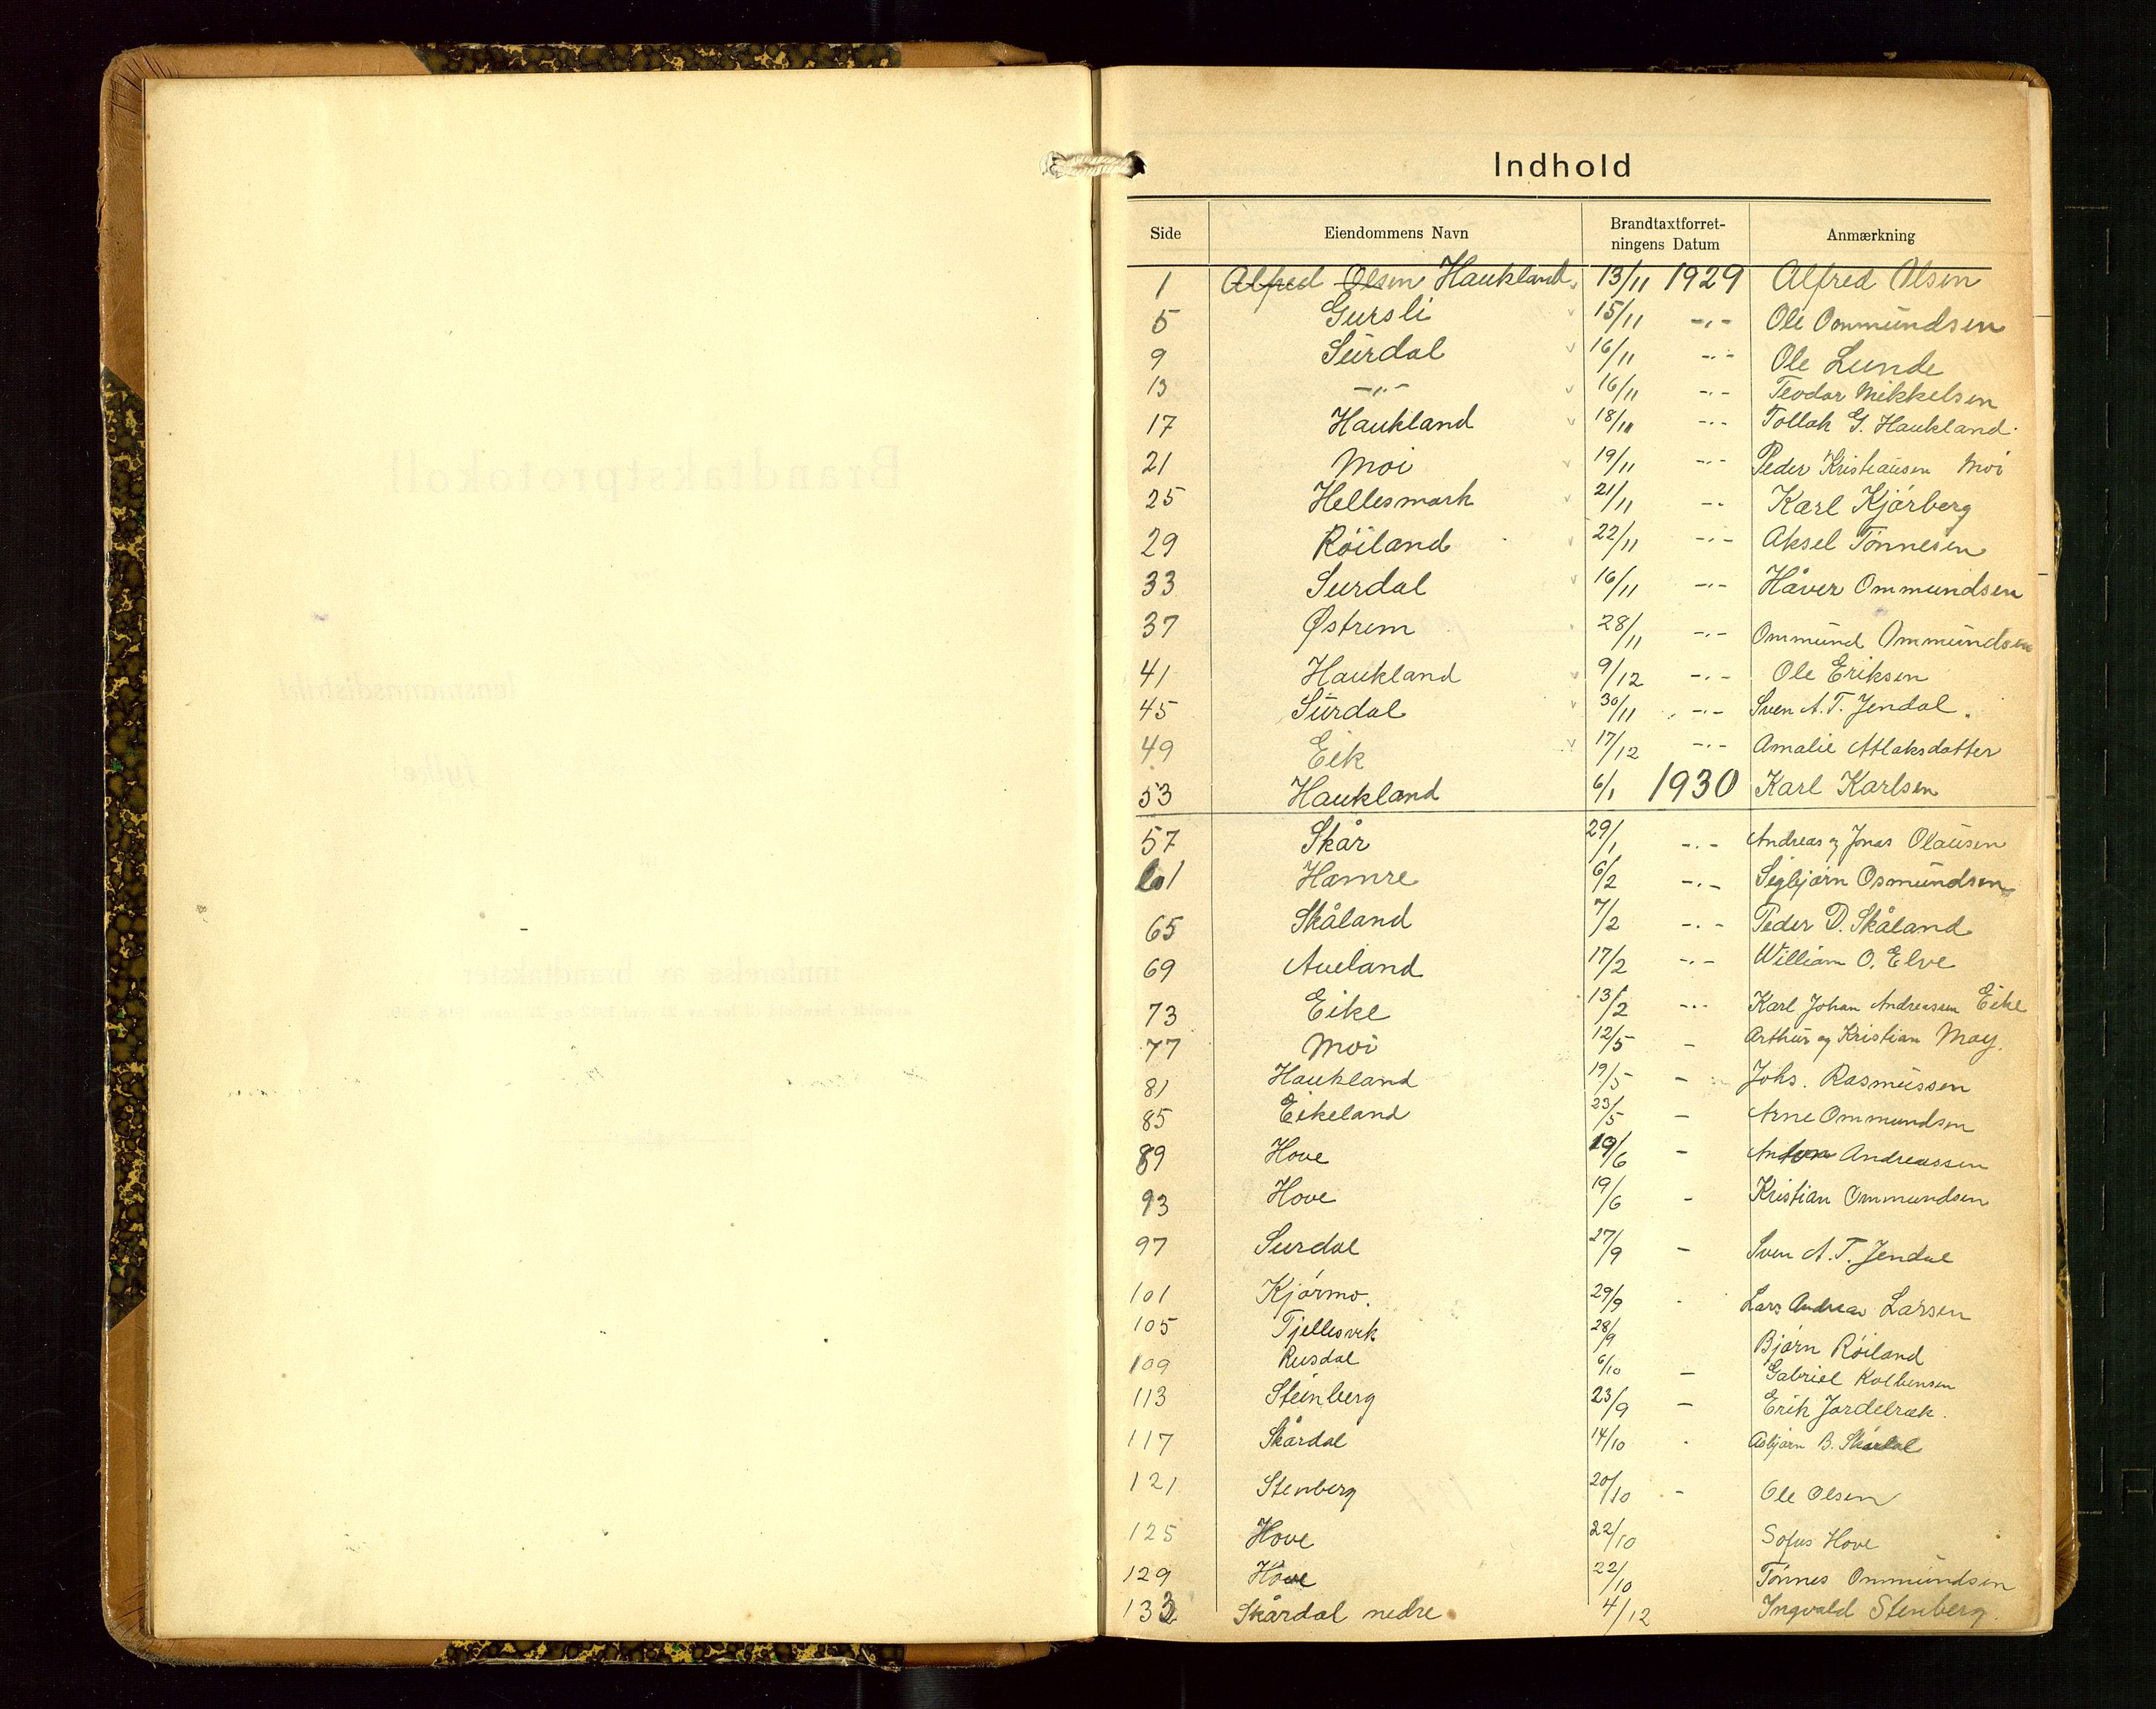 Indhold
Side Eiendommens Navn Brandtaxtforret-
ningens Datum Anmærkning
1 Alfred Olsen Haukland 13/11 1929 Alfred Olsen
5 Gursli 15/11 -"- Ole Ommundsen
9 Surdal 16/11 -"- Ole Lunde
13 -"- 16/11 -"- Teodor Mikkelsen
17 Haukland 18/11 -"- Tollak G. Haukland
21 Moi 19/11 -"- Peder Kristiansen Moi
25 Hellesmark 21/11 -"- Karl Kjørberg
29 Røiland 22/11 -"- Aksel Tønnesen
33 Surdal 16/11 -"- Håver Ommundsen
37 Østrem 28/11 -"- Ommund Ommundsen
41 Haukland 9/12 -"- Ole Eriksen
45 Surdal 30/11 -"- Sven A. T. Jendal.
49 Eik 17/12 -"- Amalie Atlaksdatter
53 Haukland 6/1 1930 Karl Karlsen
57 Skår 29/1 -"- Andreas og Jonas Olausen
61 Hamre 6/2 -"- Sigbjørn Osmundsen
65 Skåland 7/2 -"- Peder D. Skåland
69 Aueland 17/2 -"- William O. Elve
73 Eike 13/2 -"- Karl Johan Andreassen Eike
77 Moi 12/5 - Arthur og Kristian Moy.
81 Haukland 19/5 - Johs. Rasmussen
85 Eikeland 23/5 - Arne Ommundsen
89 Hove 19/6 - Andreassen
93 Hove 19/6 - Kristian Ommundsen
97 Surdal 27/9 - Sven A. T. Jendal
101 Kjørmo. 29/9 Lars Andreas Larsen
105 Tjellesvik 28/9 Bjørn Røiland
109 Rusdal 6/10 - Gabriel Kolbensen
113 Steinberg 23/9 - Erik Jordebrek.
117 Skårdal 14/10 Asbjørn B. Skårdal
121 Stenberg 20/10 - Ole Olsen
125 Hove 22/10 Sofus Hove
129 Hove 22/10 Tønnes Ommundsen
133 Skårdal nedre 4/12 Ingvald Stenberg.